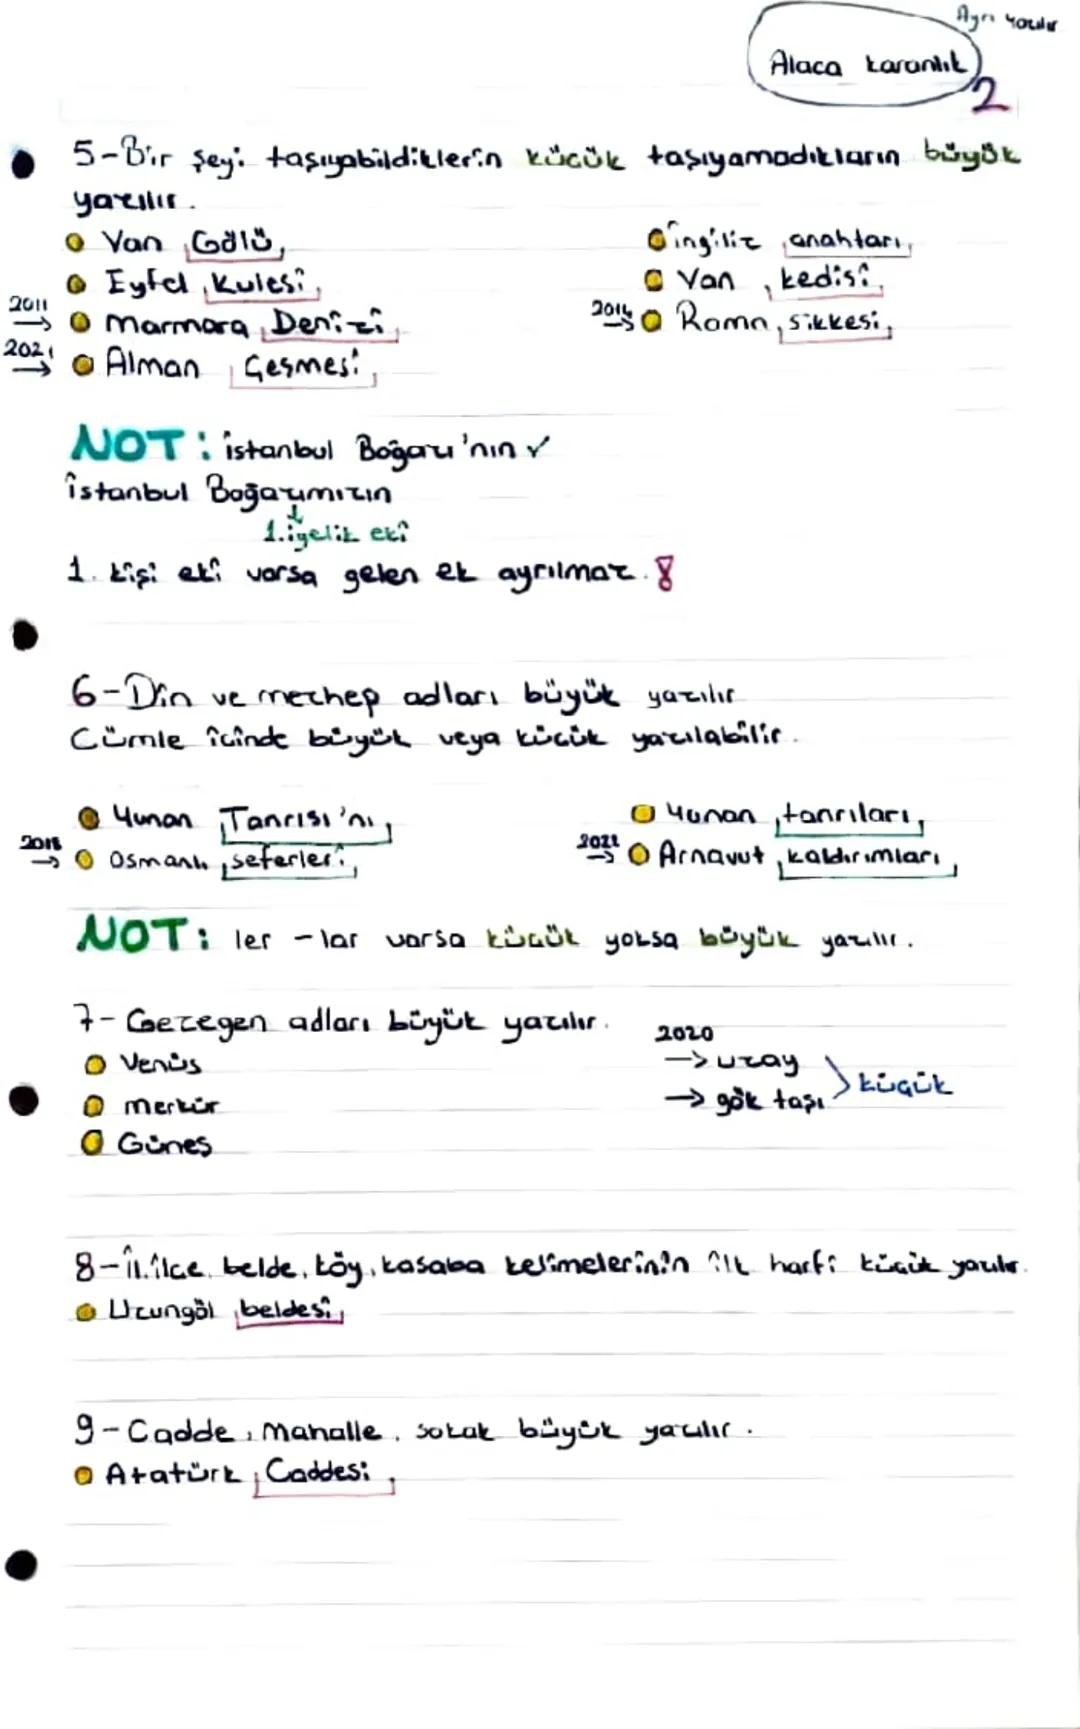 Ayrı yazılır
Alaca karanlık
2
5-Bir şeyi taşıyabildiklerin küçük taşıyamadıkların büyük
yazılır.
Van Gölü
Eyfel Kulesi
2011 → Marmara Denizi
2021 → Alman Çeşmesi
İngiliz anahtarı
Van kedisi
2014 → Roma sikkesi
NOT: İstanbul Boğazı'nın ✓
İstanbul Boğazımızın
↓
1.iyelik eki
1. kişi eki varsa gelen ek ayrılmaz.!
6-Din ve mezhep adları büyük yazılır
Cümle içinde büyük veya küçük yazılabilir.
Yunan Tanrısı'nı
2018 → Osmanlı seferleri
Yunan tanrıları
2022 → Arnavut kaldırımları
NOT: ler -lar varsa küçük yoksa büyük yazılır.
7- Gezegen adları büyük yazılır.
Venüs
Merkür
Güneş
2020
→ uzay
→ gök taşı
küçük
8-İl.ilçe, belde, köy, kasaba kelimelerinin ilk harfi küçük yazılır.
Uzungöl beldesi
9-Cadde, Mahalle, sokak büyük yazılır.
Atatürk Caddesi